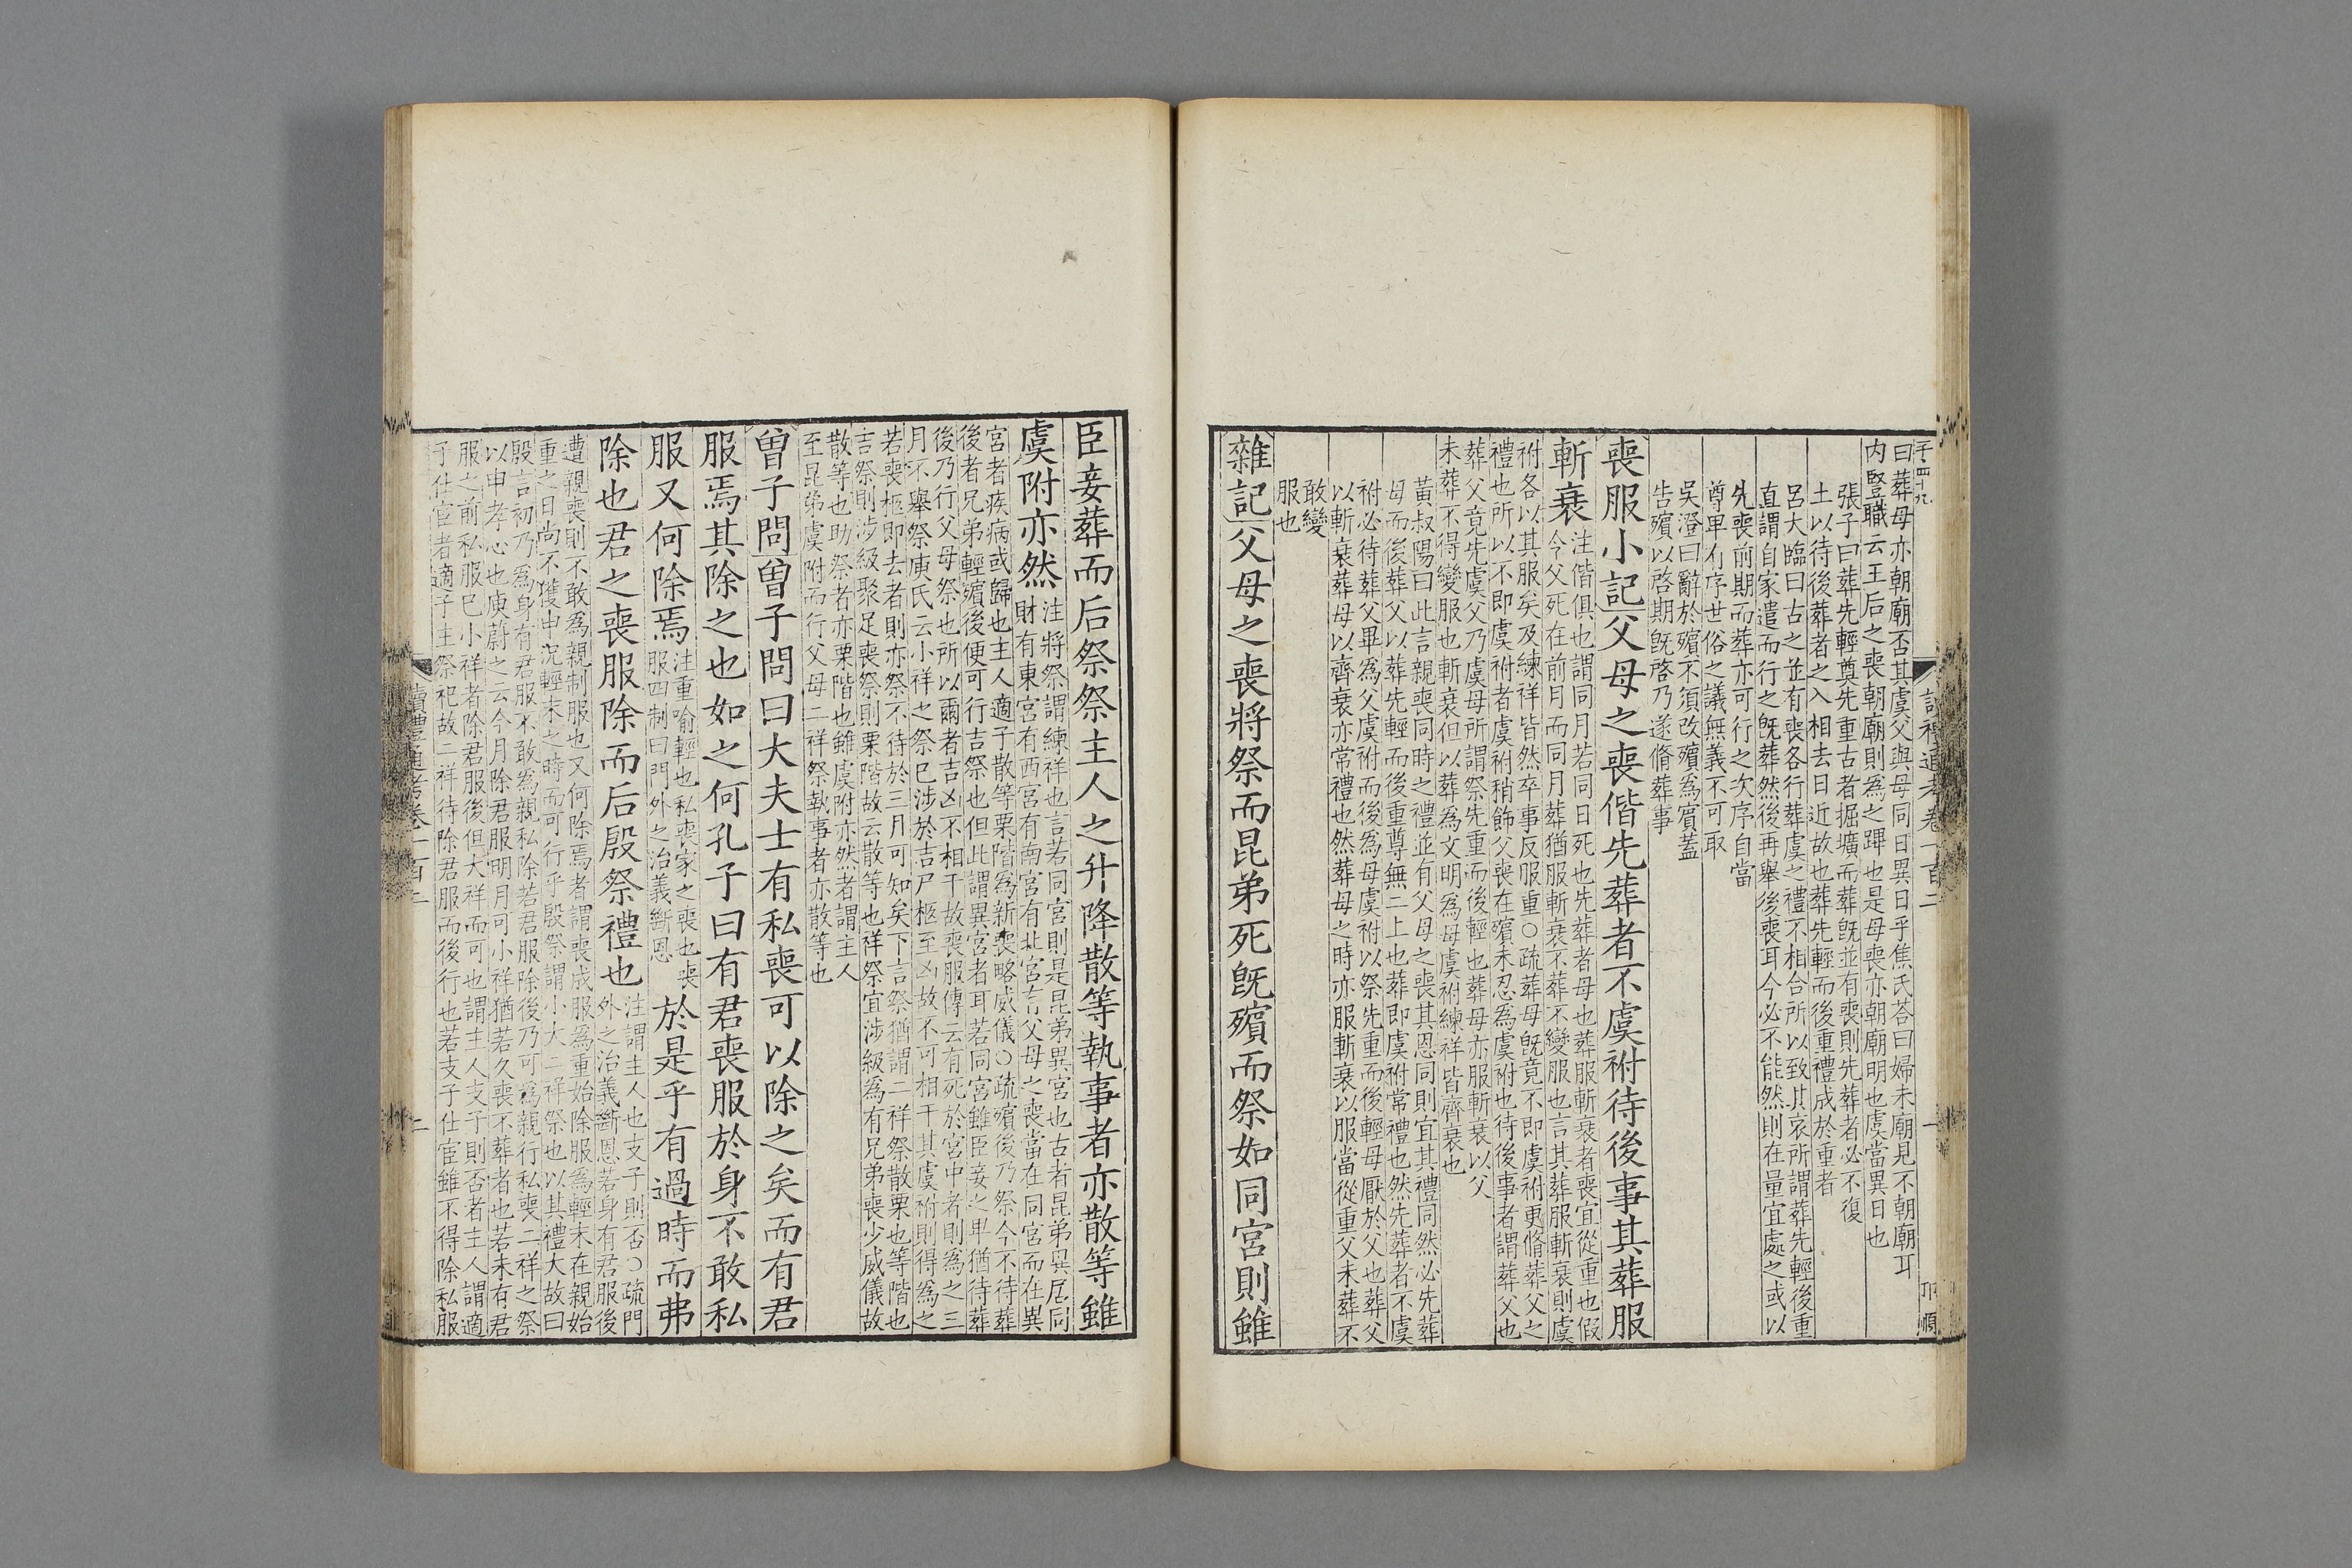 曰葬母亦朝廟否其虞父與母同日異日乎焦氏荅曰婦未廟見不朝廟耳
内豎職云王后之喪朝廟則爲之蹕也是母喪亦朝廟明也虞當異日也
張子曰葬先輕奠先重古者掘壙而葬旣並有喪則先葬者必不復
土以待後葬者之入相去日近故也葬先輕而後重禮成於重者
呂大臨曰古之並有喪各行葬虞之禮不相合所以致其哀所謂葬先輕後重
直謂自家遣而行之旣葬然後再舉後喪耳今必不能然則在量宜處之或以
先喪前期而葬亦可行之次序自當
尊卑有序世俗之議無義不可取
吳澄曰辭於殯不須改殯爲賓蓋
告殯以啓期旣啓乃遂脩葬事
喪服小記父母之喪偕先葬者不虞祔待後事其葬服
斬衰
注偕俱也謂同月若同日死也先葬者母也葬服斬衰者喪宜從重也假
令父死在前月而同月葬猶服斬衰不葬不變服也言其葬服斬衰則虞
祔各以其服矣及練祥皆然卒事反服重○疏葬母旣竟不即虞祔更脩葬父之
禮也所以不即虞祔者虞祔稍飾父喪在殯未忍爲虞祔也待後事者謂葬父也
葬父竟先虞父乃虞母所謂祭先重而後輕也葬母亦服斬衰以父
未葬不得變服也斬衰但以葬爲文明爲母虞祔練祥皆齊衰也
黃叔陽曰此言親喪同時之禮並有父母之喪其恩同則宜其禮同然必先葬
母而後葬父以葬先輕而後重尊無二上也葬即虞祔常禮也然先葬者不虞
祔必待葬父畢爲父虞祔而後爲母虞祔以祭先重而後輕母厭於父也葬父
以斬衰葬母以齊衰亦常禮也然葬母之時亦服斬衰以服當從重父未葬不
敢變
服也
雜記父母之喪將祭而昆弟死旣殯而祭如同宮則雖
臣妾葬而后祭祭主人之升降散等執事者亦散等雖
虞附亦然
注將祭謂練祥也言若同宮則是昆弟異宮也古者昆弟異居同
財有東宮有西宮有南宮有北宮有父母之喪當在同宮而在異
宮者疾病或歸也主人適子散等栗階爲新喪略威儀○疏殯後乃祭今不待葬
後者兄弟輕殯後便可行吉祭也但此謂異宮者耳若同宮雖臣妾之卑猶待葬
後乃行父母祭也所以爾者吉凶不相干故喪服傳云有死於宮中者則爲之三
月不舉祭庾氏云小祥之祭已涉於吉尸柩至凶故不可相干其虞祔則得爲之
若喪柩即去者則亦祭不待於三月可知矣下言祭猶謂二祥祭散栗也等階也
吉祭則涉級聚足喪祭則栗階故云散等也祥祭宜涉級爲有兄弟喪少威儀故
散等也助祭者亦栗階也雖虞附亦然者謂主人
至昆弟虞附而行父母二祥祭執事者亦散等也
曾子問曾子問曰大夫士有私喪可以除之矣而有君
服焉其除之也如之何孔子曰有君喪服於身不敢私
服又何除焉
注重喻輕也私喪家之喪也喪
服四制曰門外之治義斷恩
於是乎有過時而弗
除也君之喪服除而后殷祭禮也
注謂主人也支子則否○疏門
外之治義斷恩若身有君服後
遭親喪則不敢爲親制服也又何除焉者謂喪成服爲重始除服爲輕末在親始
重之日尚不獲申况輕末之時而可行乎殷祭謂小大二祥祭也以其禮大故曰
殷言初乃爲身有君服不敢爲親私除若君服除後乃可爲親行私喪二祥之祭
以申孝心也庾蔚之云今月除君服明月可小祥猶若久喪不葬者也若未有君
服之前私服已小祥者除君服後但大祥而可也謂主人支子則否者主人謂適
子仕宦者適子主祭祀故二祥待除君服而後行也若支子仕宦雖不得除私服
讀禮通考卷一百二
二